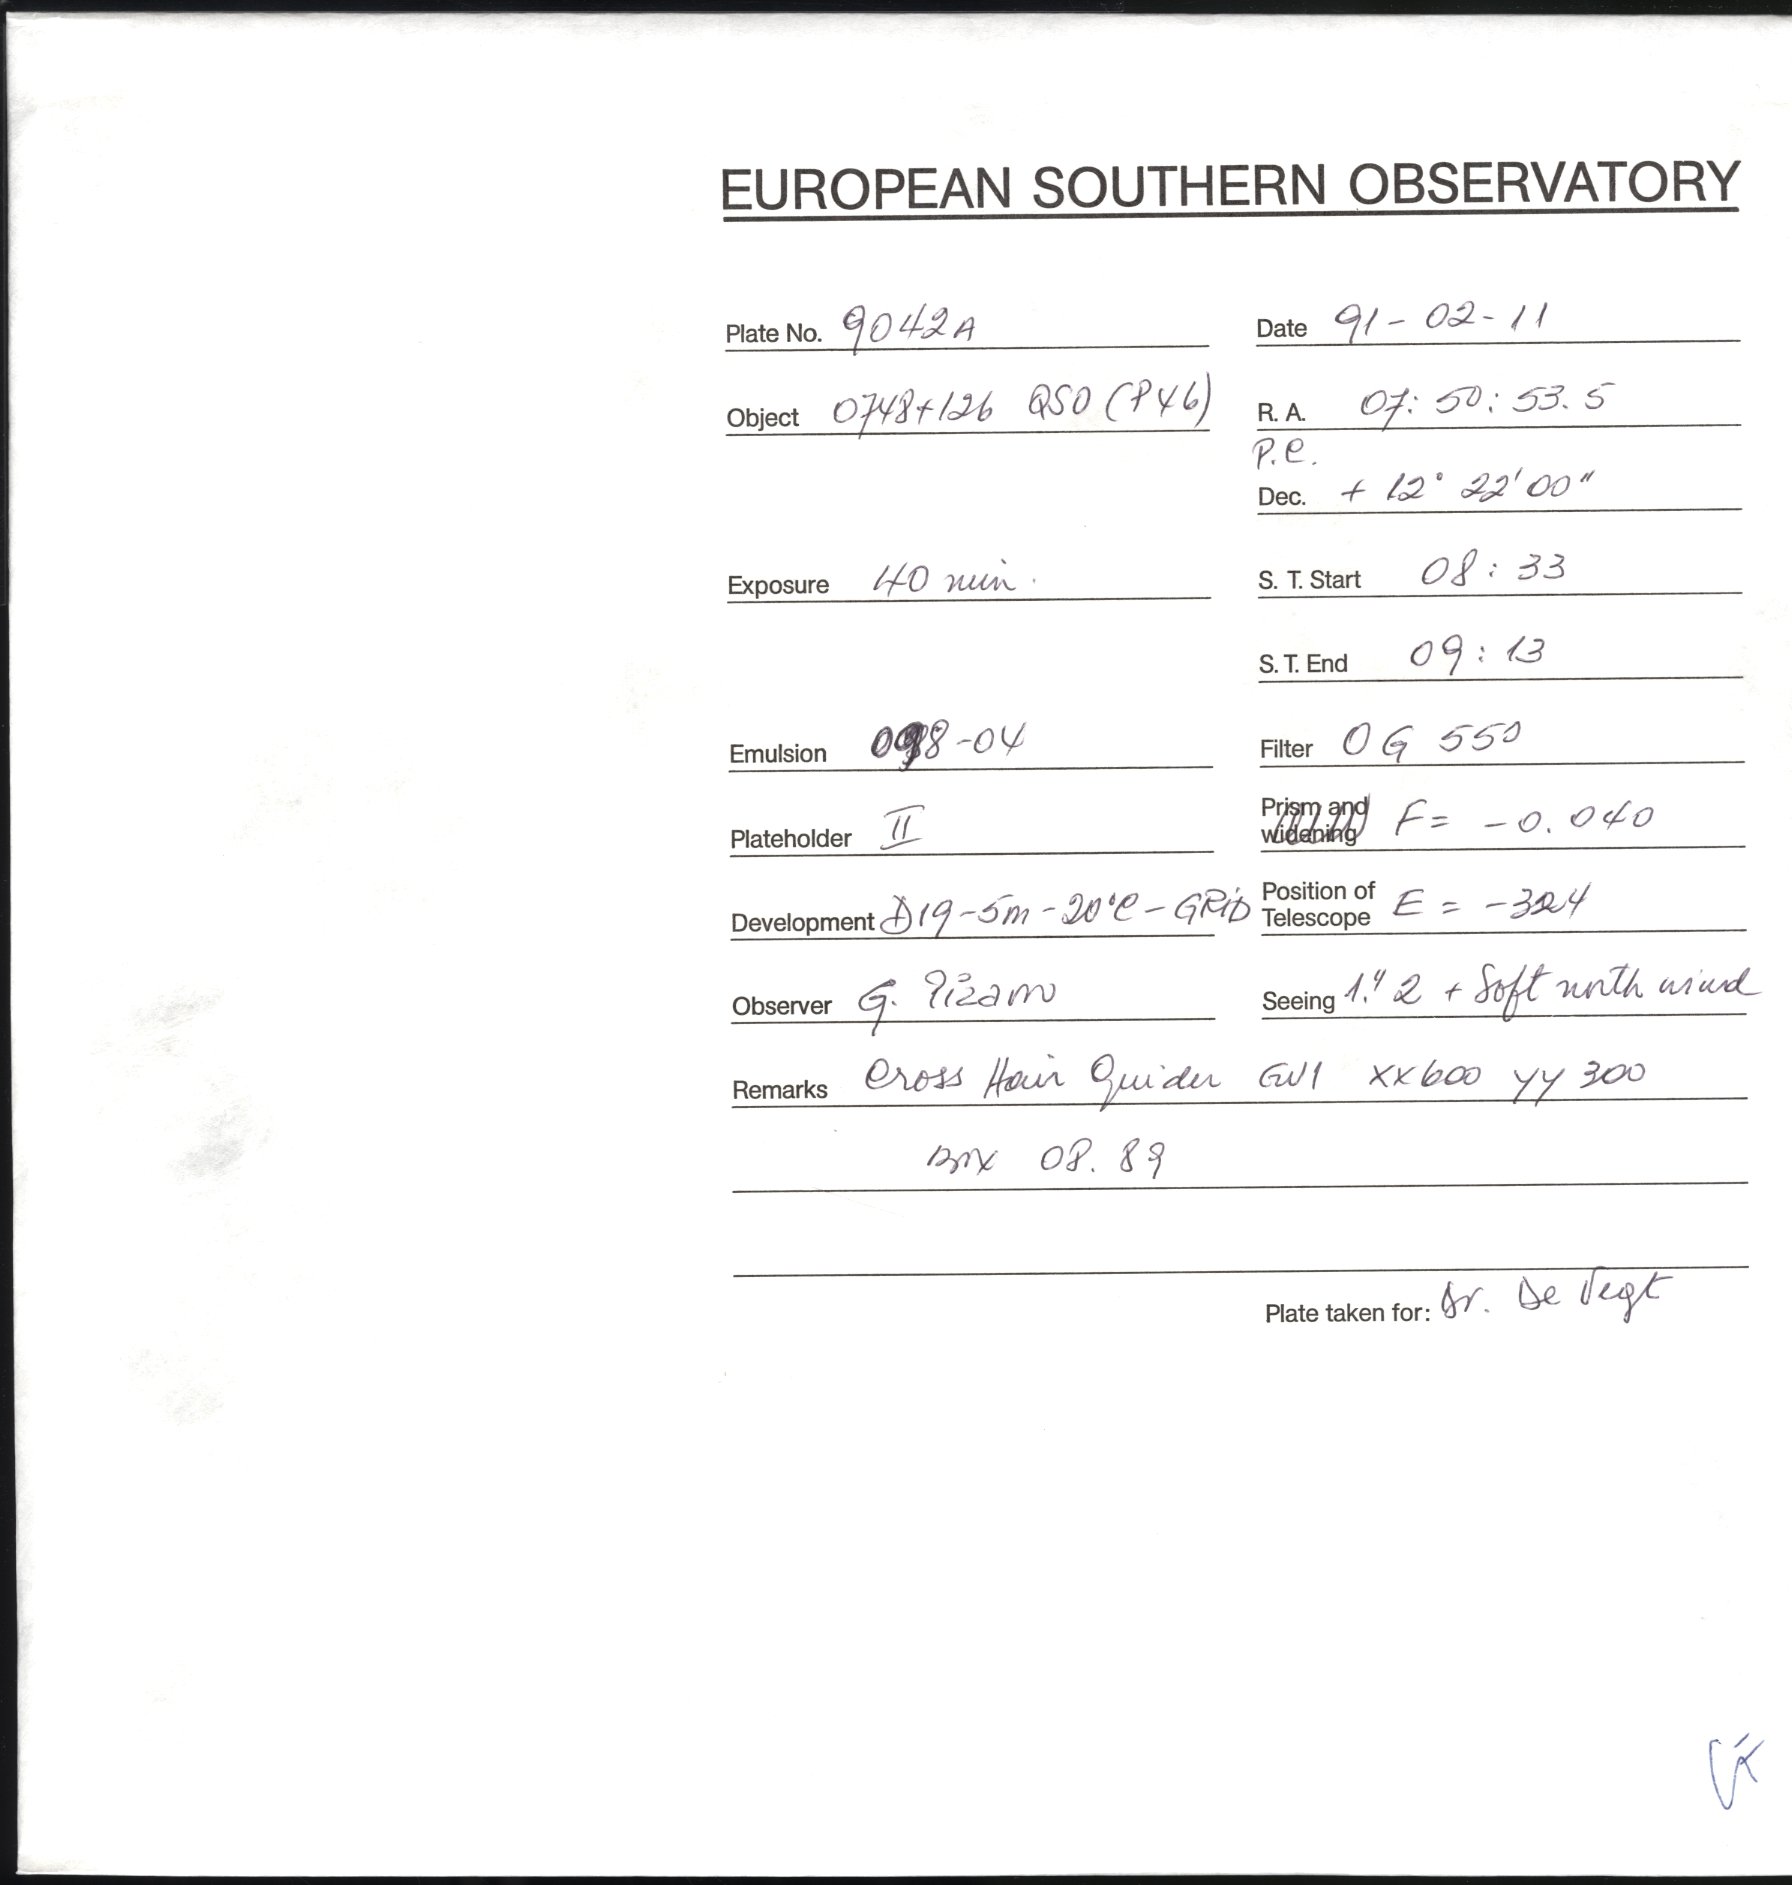 EUROPEAN SOUTHERN OBSERVATORY
Plate No. 9042A Date 91-02-11
Object 0748+126 QSO (P46) R. A. 07: 50: 53.5
P.C.
Dec. + 12° 22' 00"
Exposure 40 min. S. T. Start 08: 33
S. T. End 09: 13
Emulsion 098-04 Filter OG 550
Plateholder II Prism and widening F= -0.040
Development D19-5m-20°C-GRID Position of Telescope E = -324
Observer G. Pizarro Seeing 1."2 + Soft north wind
Remarks Cross Hair Guider XX600 YY 300
Box 08. 89
Plate taken for: Dr. De Vegt